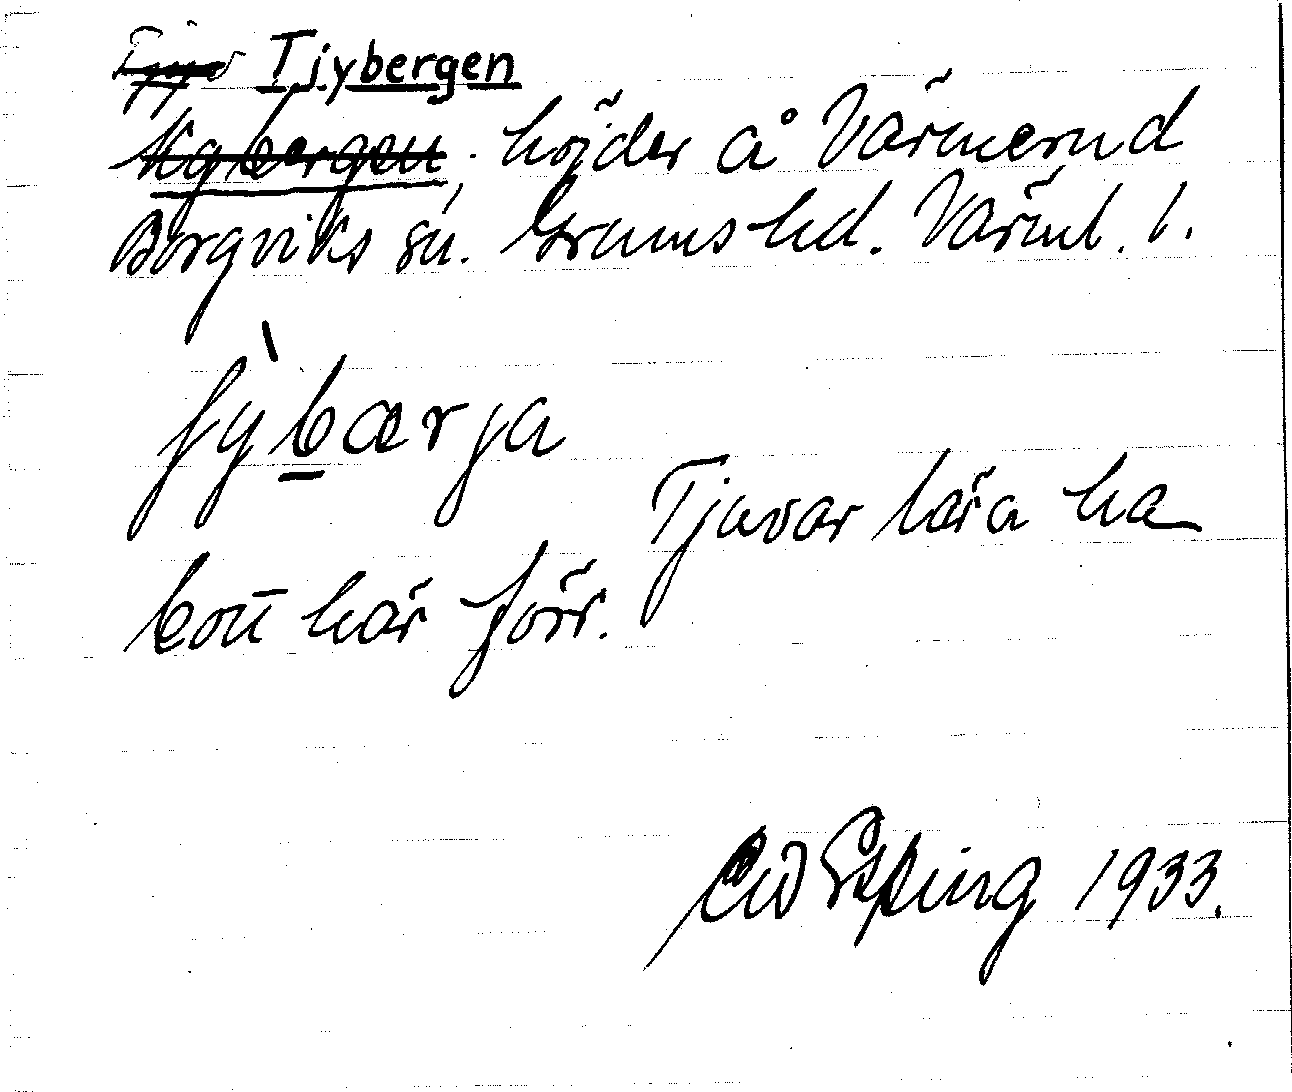 Tjybergen
höjder å Värmernd
Borgviks sn. Grums hd. Värml. l.
fy̍bærja
Tjuvar lära ha
bott här förr.
1933.